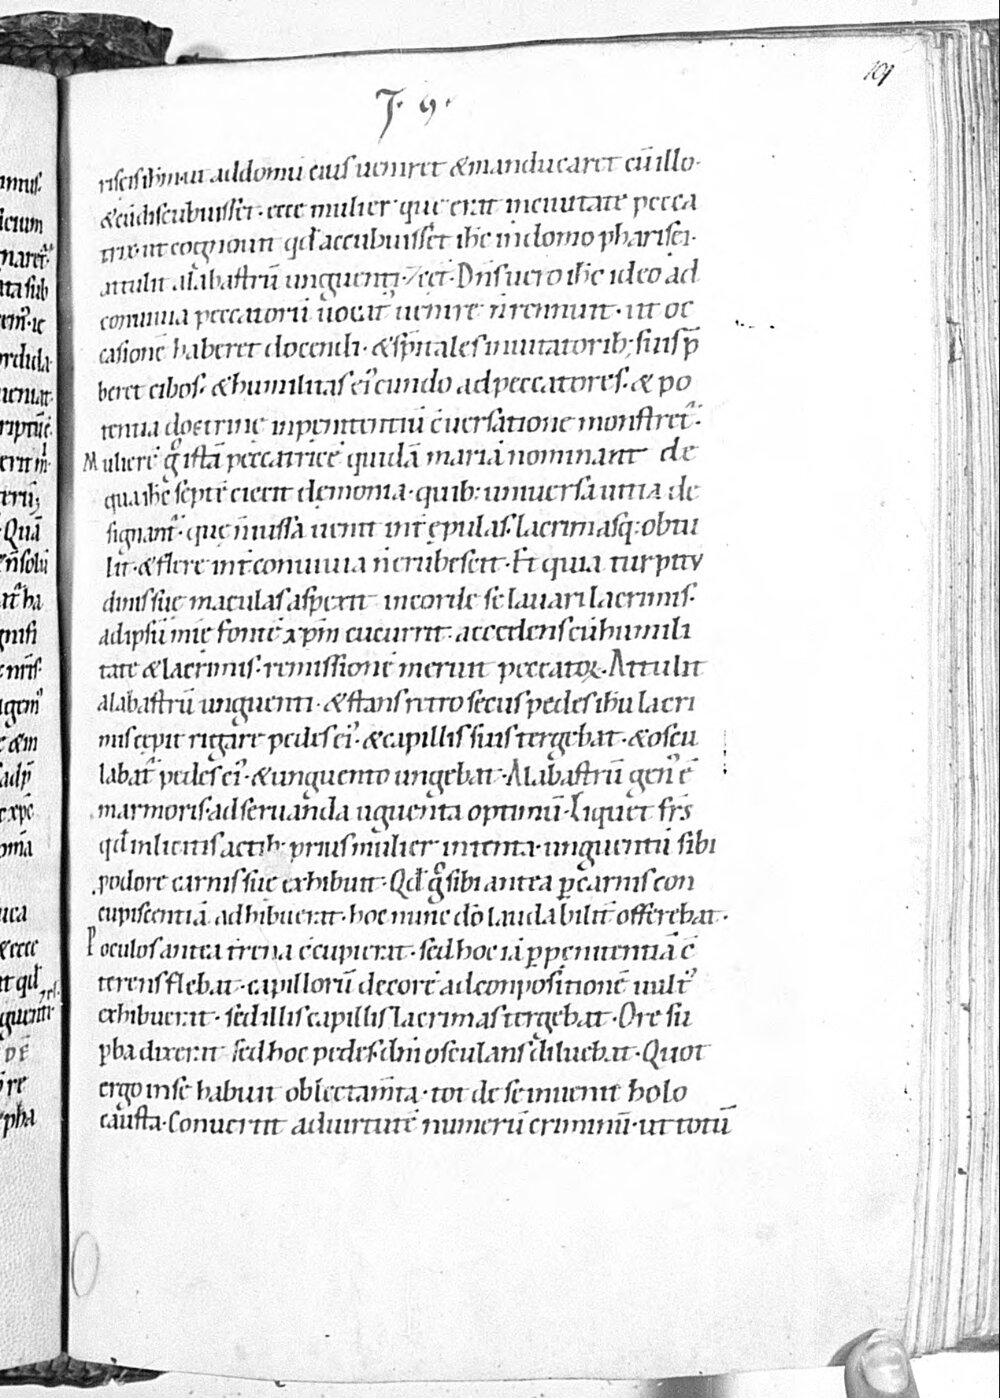 101
J · 9 ·
riseis ihm ut ad domū eius ueniret & manducaret cū illo·
& cū discubuisset · ecce mulier que erat in ciuitate pecca
trix · ut cognouit qđ accubuisset ihc in domo pharisei·
attulit alabastrū unguenti · Dn̄s uero ihc ideo ad
conuiuia peccatorū uocat' uenire n̄ rennuit · ut oc
casionē haberet docendi · & sp̄itales inuitatorib; suis p̄
beret cibos · & humilitas ei' eundo ad peccatores · & po
tentia doctrine in penitentiū c̄uersatione monstret'·
Mulierē g° istā peccatricē quidā mariā nominant de
qua ihc septē eiecit demonia · quib: uniuersa uitia de
signant' · que n̄ iussa uenit int̄ epulas · lacrimasq: obtu
lit · & flere int̄ conuiuia n̄ erubescit · Et quia turpitu
dinis sue maculas aspexit in corde se lauari lacrimis·
ad ipsū mīe fontē xp̄m cucurrit · accedens cū humili
tate & lacrimis · remissionē meruit peccatoꝝ · Attulit
alabastrū unguenti · & stans retro secus pedes ihū lacri
mis cepit rigare pedes ei' · & capillis suis tergebat · & oscu
labat' pedes ei' · & unguento ungebat · Alabastrū gen' ē
marmoris · ad seruanda uguenta optimū · Liquet fr̄s
qđ inlicitis actib; prius mulier intenta · unguentū sibi
podore carnis sue exhibuit · Qđ g° sibi antea p̱ carnis con
cupiscentiā adhibuerat · hoc nunc dō laudabilit̄ offerebat·
P oculos antea t̄rena c̄cupierat · sed hoc iā p̱ penitentiā c̄
terens flebat · capillorū decorē ad conpositionē uult'
exhibuerat · sed illis capillis lacrimas tergebat · Ore su
p̱ba dixerat sed hoc pedes dn̄i osculans diluebat · Quot
ergo in se habuit oblectam̄ta · tot de se inuenit holo
causta · Conuertit ad uirtutē numerū criminū · ut totū